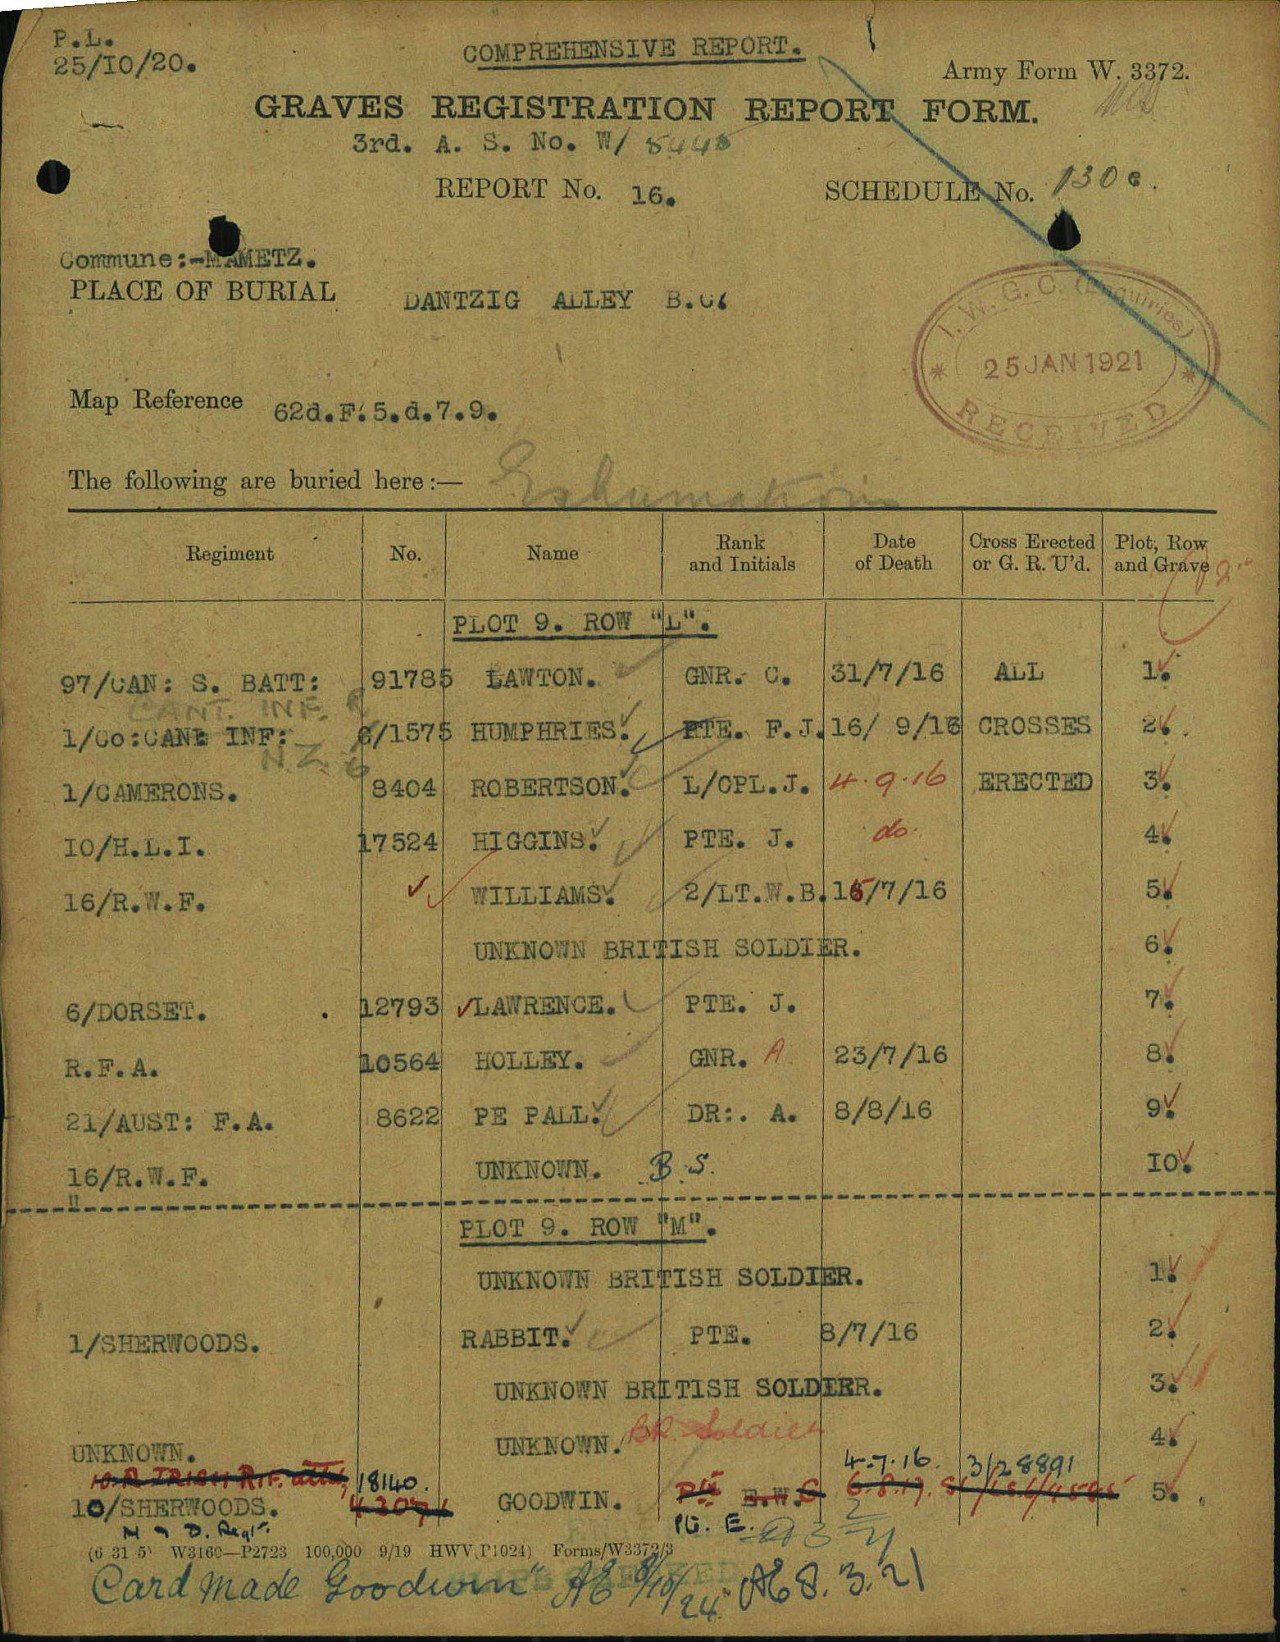 P.L.
25/10/20.
COMPREHENSIVE REPORT.
Army Form W. 3372.
GRAVES REGISTRATION REPORT FORM.
3rd. A. S. No. W/ 5448
REPORT No. 16.
SCHEDULE No. 130
Commune:-MAMETZ.
PLACE OF BURIAL DANTZIG ALLEY B.C.
I.W.G.C. (Enquiries)
25 JAN 1921
RECEIVED
Map Reference 62d.F.5.d.7.9.
The following are buried here:— Exhumations
Regiment No. Name Rank and Initials Date of Death Cross Erected or G. R. U'd. Plot, Row and Grave
PLOT 9. ROW "L".
97/CAN: S. BATT: 91785 LAWTON. GNR. C. 31/7/16 ALL 1.
CANT. INF. R
1/Co:CANT INF: 6/1575 HUMPHRIES. PTE. F.J. 16/ 9/16 CROSSES 2.
N.Z. 6
1/CAMERONS. 8404 ROBERTSON. L/CPL.J. 4.9.16 ERECTED 3.
10/H.L.I. 17524 HIGGINS. PTE. J. do. 4.
16/R.W.F. WILLIAMS. 2/LT.W.B. 15/7/16 5.
UNKNOWN BRITISH SOLDIER. 6.
6/DORSET. 12793 LAWRENCE. PTE. J. 7.
R.F.A. 10564 HOLLEY. GNR. A 23/7/16 8.
21/AUST: F.A. 8622 PE PALL. DR:. A. 8/8/16 9.
16/R.W.F. UNKNOWN. B.S. 10.
"
PLOT 9. ROW "M".
UNKNOWN BRITISH SOLDIER. 1.
1/SHERWOODS. RABBIT. PTE. 8/7/16 2.
UNKNOWN BRITISH SOLDIER. 3.
UNKNOWN. UNKNOWN. BR. Soldier 4.
10.R IRISH RIF. attd, 18140. 4.7.16. 3/28891
10/SHERWOODS. 43071 GOODWIN. Pte E.W.G 6.8.17. 5.
N & D. Regt. Pte. E.
(6 31 5) W3160—P2723 100,000 9/19 HWV(P1024) Forms/W3372/3
Card made "Goodwin" AE 8/10/24 AE 8.3.21